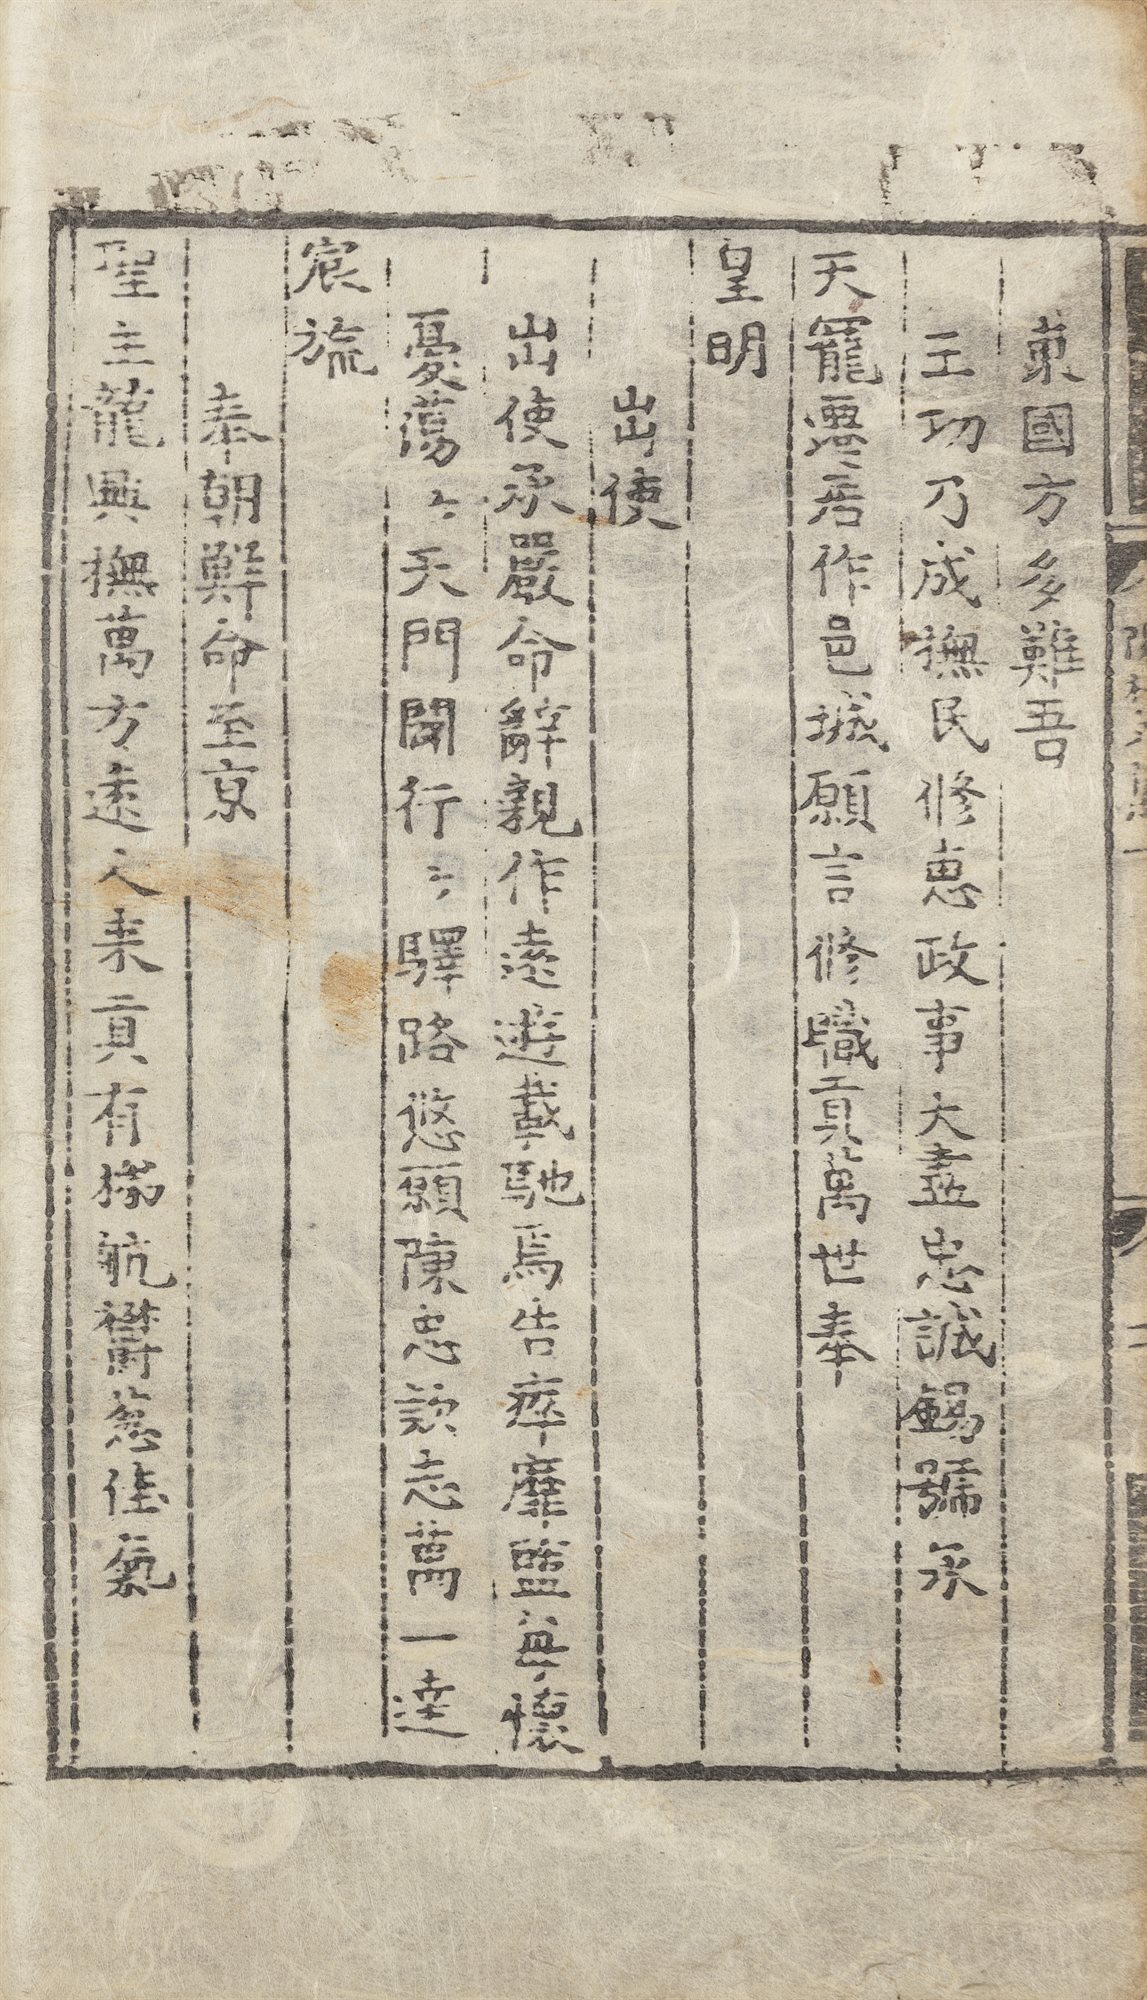 東國方多難吾
王功乃成撫民修惠政事大盡忠誠錫號承
天寵遷居作邑城願言修職貢萬世奉
皇明
出使
出使承嚴命辭親作遠遊載馳焉告瘁靡盬豈懷
憂蕩〻天門行〻驛路悠願陳忠款志萬一達
宸旒
奉朝鮮命至京
聖主龍興撫萬方遠人来貢有梯航鬱葱佳氣